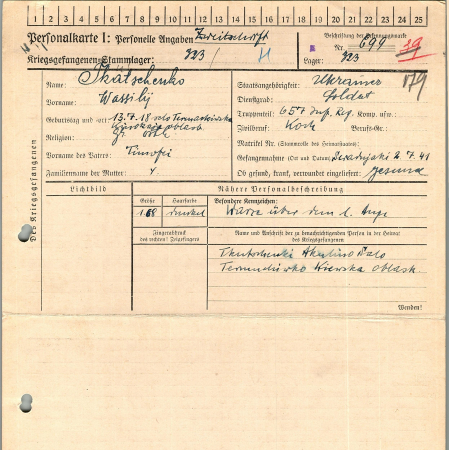 1 2 3 4 5 6 7 8 9 10 11 12 13 14 15 16 17 18 19 20 21 22 23 24 25
Personalkarte I: Personelle Angaben Zweitschrift
Kriegsgefangenen-Stammlager: 323 / H
Beschriftung der Erkennungsmarke
Nr. 694 39
Lager: 323 179
Des Kriegsgefangenen
Name: Tkatschenko
Vorname: Wassilij
Geburtstag und -ort: 13.7.18
Religion:
Vorname des Vaters: Timofei
Familienname der Mutter:
Staatsangehörigkeit: Ukrainer
Dienstgrad: Soldat
Truppenteil: 657 Inf. Reg. Komp. usw.:
Zivilberuf: Koch Berufs-Gr.:
Matrikel Nr. (Stammrolle des Heimatstaates):
Gefangennahme (Ort und Datum): 2.7.41
Ob gesund, krank, verwundet eingeliefert: gesund
Lichtbild
Nähere Personalbeschreibung
Größe Haarfarbe Besondere Kennzeichen:
1.68 dunkel Warze über dem l. Auge
Fingerabdruck
des rechten Zeigefingers
Name und Anschrift der zu benachrichtigenden Person in der Heimat
des Kriegsgefangenen
Oblast.
Wenden!